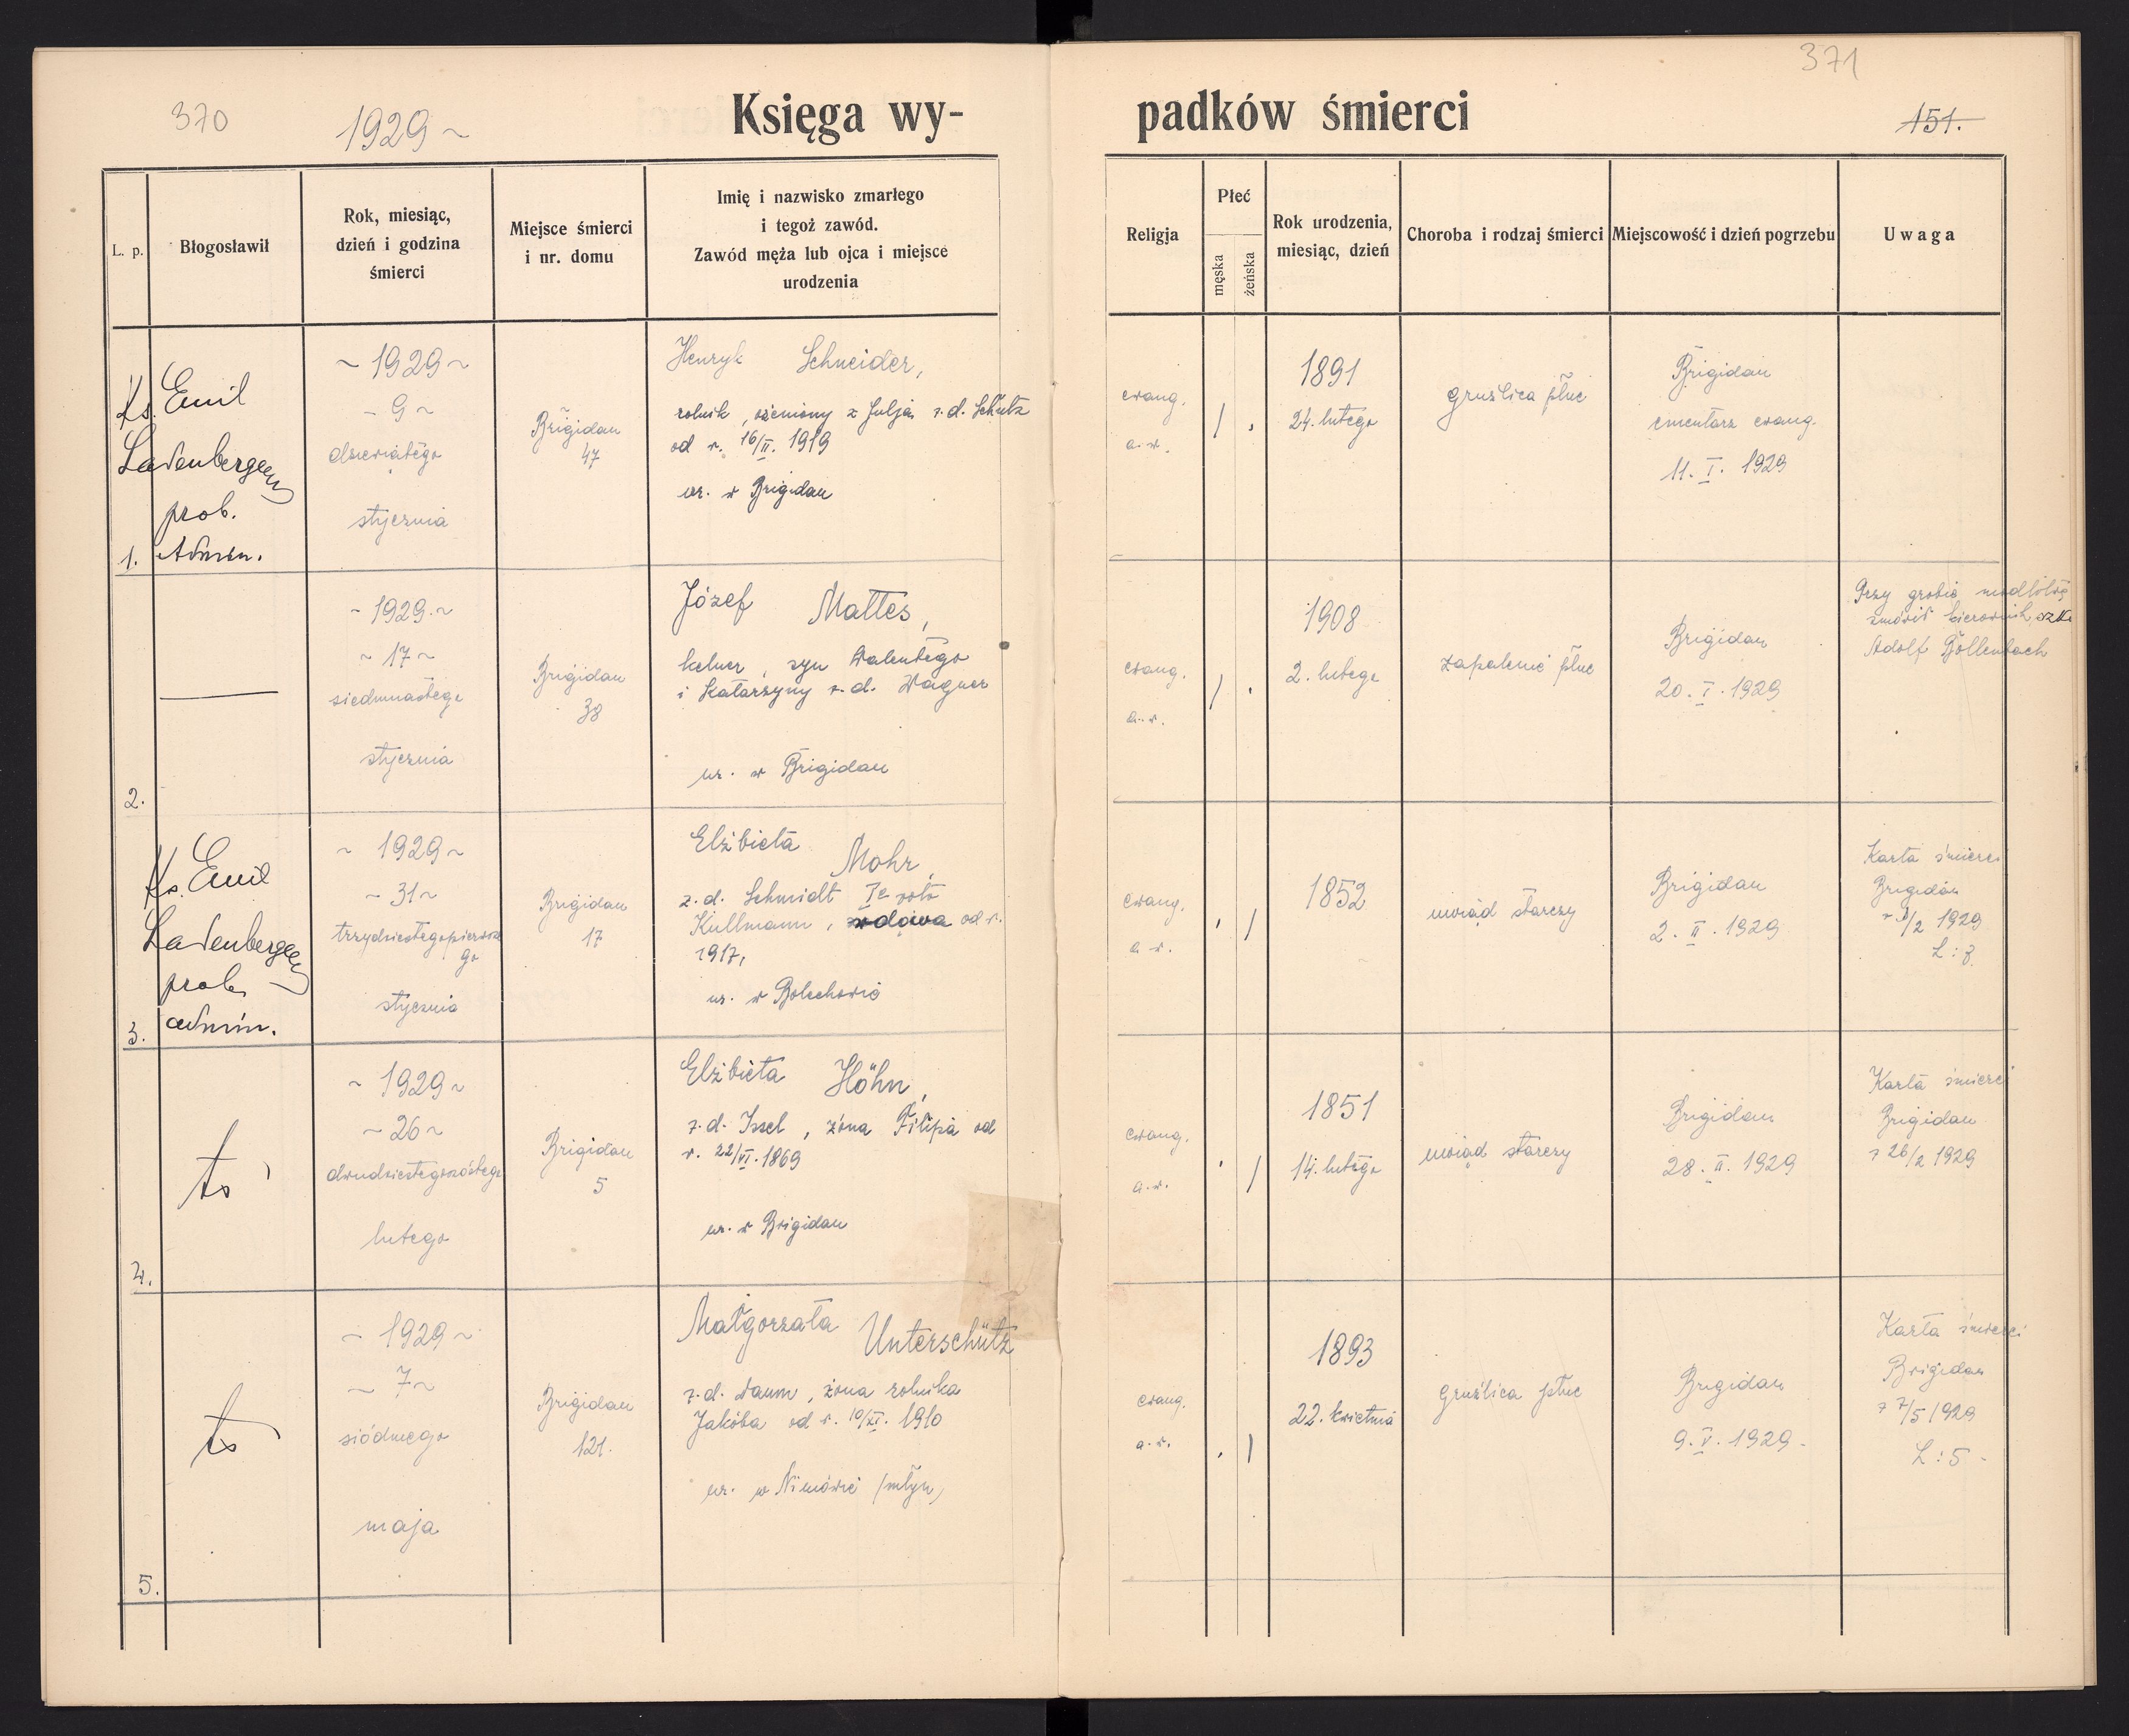 370
1929
Księga wy-
padków śmierci
371
151.
L. p.
Błogosławił
Rok, miesiąc,
dzień i godzina
śmierci
Miejsce śmierci
i nr. domu
Imię i nazwisko zmarłego
i tegoż zawód.
Zawód męża lub ojca i miejsce
urodzenia
Religja
Płeć
męska
żeńska
Rok urodzenia,
miesiąc, dzień
Choroba i rodzaj śmierci
Miejscowość i dzień pogrzebu
Uwaga
1.
Ks. Emil
Ladenberger
prob.
Admin.
~ 1929 ~
- 9 ~
dziewiątego
stycznia
Brigidau
47
Henryk Schneider,
rolnik, ożeniony z Julją z. d. Schütz
od r. 16/II. 1919
ur. w Brigidau
ewang.
a. w.
1891
24. lutego
gruźlica płuc
Brigidau
cmentarz ewang.
11. I. 1929
2.
- 1929 ~
~ 17 ~
siedmnastego
stycznia
Brigidau
38
Józef Mattes,
kelner, syn Walentego
i Katarzyny z. d. Wagner
ur. w Brigidau
ewang.
a. w.
1908
2. lutego
zapalenie płuc
Brigidau
20. I. 1929
Przy grobie modlitwę
zmówił kierownik
Adolf Bollenbach
3.
Ks. Emil
Ladenberger
prob.
admin.
~ 1929 ~
- 31 ~
trzydziestegopierwsze
go
stycznia
Brigidau
17
Elżbieta Mohr,
z. d. Schmidt Ie voto
Kullmann, wdowa od r.
1917,
ur. w Bolechowie
ewang.
a. w.
1852
uwiąd starczy
Brigidau
2. II. 1929
Karta śmierci
Brigidau
/2 1929
L: 3.
4.
to
~ 1929 ~
~ 26 ~
dwudziestegoszóstego
lutego
Brigidau
5
Elżbieta Höhn,
z. d. Issel, żona Filipa od
r. 22/VI. 1869
ur. w Brigidau
ewang.
a. w.
1851
14. lutego
uwiąd starczy
Brigidau
28. II. 1929
Karta śmierci
Brigidau
z 26/2 1929
5.
to
~ 1929 ~
~ 7 ~
siódmego
maja
Brigidau
121.
Małgorzata Unterschütz
z. d. Daum, żona rolnika
Jakóba od r. 10/XI. 1910
ur. w (młyn)
ewang.
a. w.
1893
22. kwietnia
Gruźlica płuc
Brigidau
9. V. 1929.
Karta śmierci
Brigidau
z 7/5 1929
L: 5